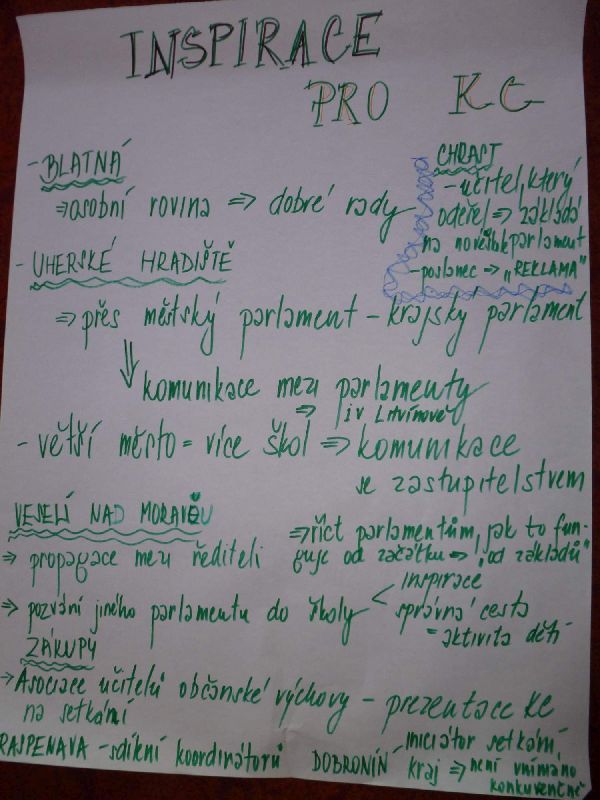 INSPIRACE
PRO KC
- BLATNÁ
⇒ osobní rovina ⇒ dobré rady
CHRAST
- učitel, který
odešel ⇒ zakládá
na nové škole parlament
- poslanec → „REKLAMA"
- UHERSKÉ HRADIŠTĚ
⇒ přes městský parlament - krajský parlament
⇓ komunikace mezi parlamenty
⇒ i v Litvínově
- větší město = více škol ⇒ komunikace
se zastupitelstvem
VESELÍ NAD MORAVOU
⇒ propagace mezi řediteli
⇒ říct parlamentům, jak to fun-
guje od začátku ⇒ „od základů"
⇒ pozvání jiného parlamentu do školy < inspirace
správná cesta
= aktivita dětí
ZÁKUPY
→ Asociace učitelů občanské výchovy - prezentace KC
na setkání
RASPENAVA - sdílení koordinátorů
DOBRONÍN - iniciátor setkání,
kraj ⇒ není vnímáno
konkurenčně